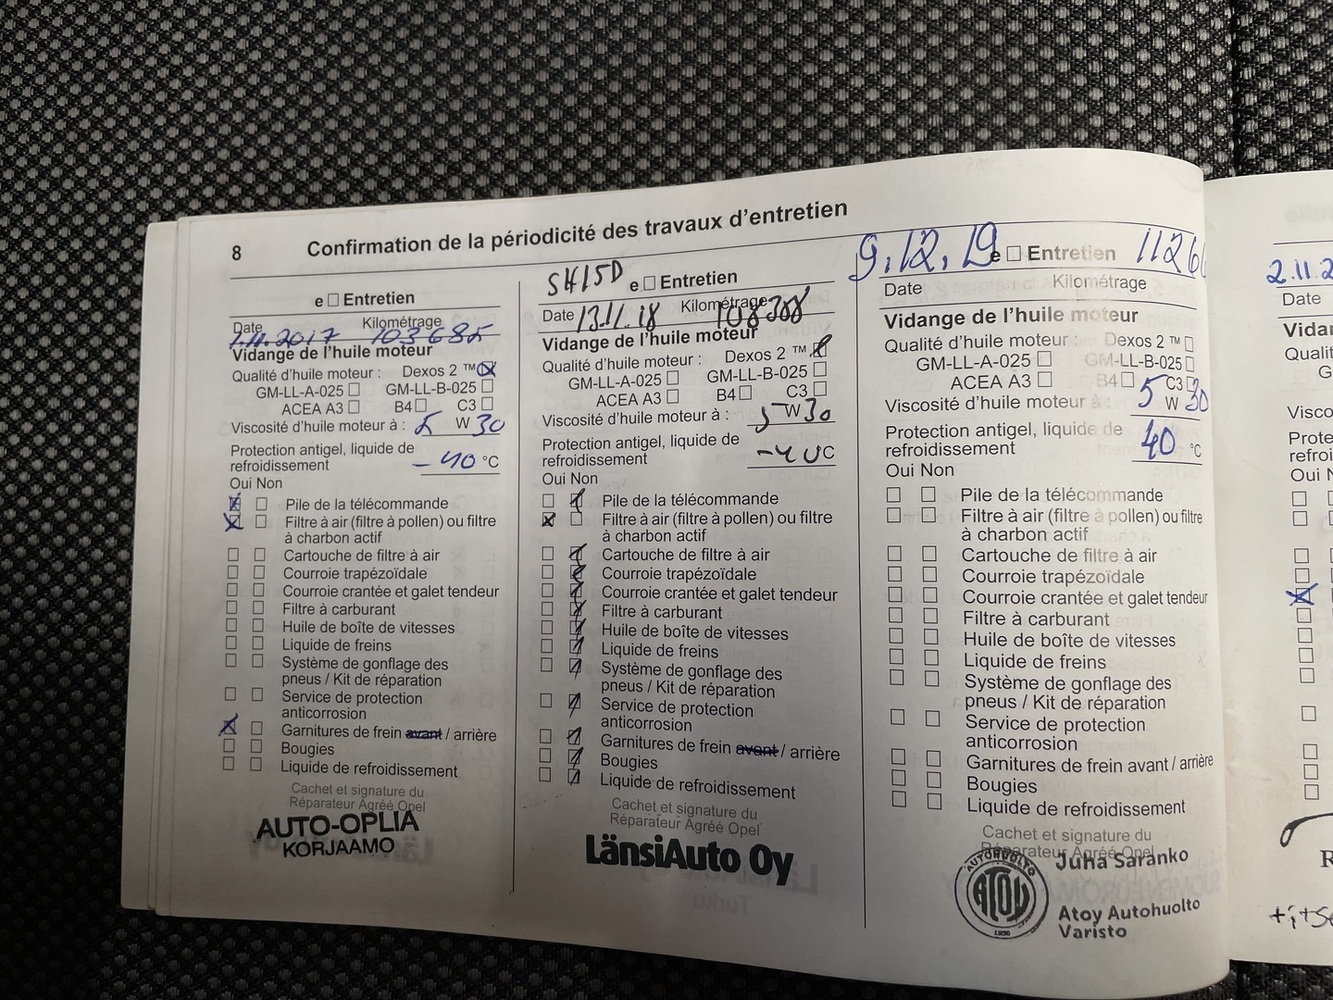 8 Confirmation de la périodicité des travaux d'entretien
e Entretien
Date Kilométrage
1.11.2017 103685
Vidange de l'huile moteur
Qualité d'huile moteur : Dexos 2 ™
GM-LL-A-025 GM-LL-B-025
ACEA A3 B4 C3
Viscosité d'huile moteur à : 5 W 30
Protection antigel, liquide de
refroidissement -40 °C
Oui Non
Pile de la télécommande
Filtre à air (filtre à pollen) ou filtre
à charbon actif
Cartouche de filtre à air
Courroie trapézoïdale
Courroie crantée et galet tendeur
Filtre à carburant
Huile de boîte de vitesses
Liquide de freins
Système de gonflage des
pneus / Kit de réparation
Service de protection
anticorrosion
Garnitures de frein avant / arrière
Bougies
Liquide de refroidissement
Cachet et signature du
Réparateur Agréé Opel
AUTO-OPLIA
KORJAAMO
e Entretien
Date 13.11.18 Kilométrage
Vidange de l'huile moteur
Qualité d'huile moteur : Dexos 2 ™
GM-LL-A-025 GM-LL-B-025
ACEA A3 B4 C3
Viscosité d'huile moteur à : 5 W 30
Protection antigel, liquide de
refroidissement -40 C
Oui Non
Pile de la télécommande
Filtre à air (filtre à pollen) ou filtre
à charbon actif
Cartouche de filtre à air
Courroie trapézoïdale
Courroie crantée et galet tendeur
Filtre à carburant
Huile de boîte de vitesses
Liquide de freins
Système de gonflage des
pneus / Kit de réparation
Service de protection
anticorrosion
Garnitures de frein avant / arrière
Bougies
Liquide de refroidissement
Cachet et signature du
Réparateur Agréé Opel
LänsiAuto Oy
9.12.19 e Entretien 1126
Date Kilométrage
Vidange de l'huile moteur
Qualité d'huile moteur : Dexos 2 ™
GM-LL-A-025 GM-LL-B-025
ACEA A3 B4 C3
Viscosité d'huile moteur à : 5 W 30
Protection antigel, liquide de
refroidissement 40 °C
Oui Non
Pile de la télécommande
Filtre à air (filtre à pollen) ou filtre
à charbon actif
Cartouche de filtre à air
Courroie trapézoïdale
Courroie crantée et galet tendeur
Filtre à carburant
Huile de boîte de vitesses
Liquide de freins
Système de gonflage des
pneus / Kit de réparation
Service de protection
anticorrosion
Garnitures de frein avant / arrière
Bougies
Liquide de refroidissement
Cachet et signature du
Réparateur Agréé Opel
Juha Saranko
AUTOHUOLTO
ATOY
Atoy Autohuolto
Varisto
2.11.2
Date
Oui